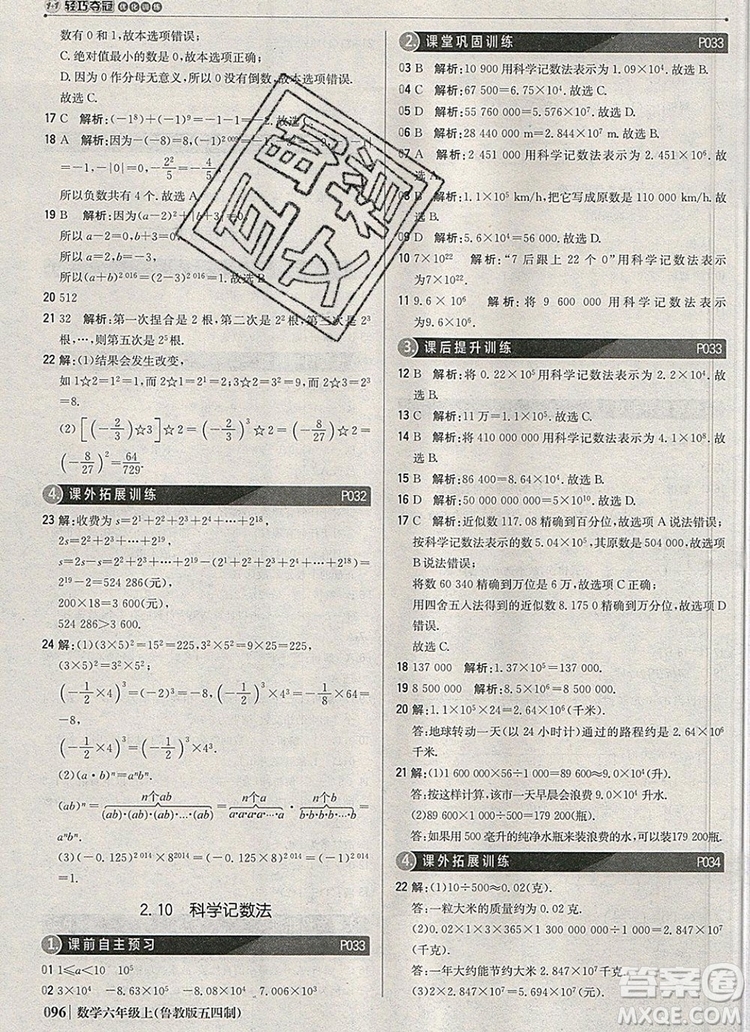 1+1 轻巧夺冠 优化训练
数有 0 和 1,故本选项错误;
误;
D.因为 0 作分母无意义,所以 0 没有倒数,故本选项错误.
故选 C.
17 C 解析:(-1⁸)+(-1)⁹=-1-1=-2.
18 A
=-1,|-3|=3,-2²/5=-4/5
所以负数共有 4 个.故选 A.
19 B 解析:因为(a-2)²+|b
所以 a-2=0,b+3=0,
所以 a=2,b=-3,
所以(a+b)²⁰¹⁶=(2-3)²⁰¹⁶=1.故
20 512
21 32 解析:第一次捏合是 2 根,第二次是 2² 根,第三次是 2³
根,…,则第五次是 2⁵
22 解:(1)结果会发生改变,
如 1☆2=1²=1,2☆1=2¹=2,2☆3=2³
=8.
(2)[(-2/3)☆3]☆2=(-2/3)³☆2=(-8/27)☆2=
(-8/27)²=64/729.
4. 课外拓展训练 P032
23 解:收费为 s=2¹+2²+2³+…+2¹⁸,
2s=2²+2³+…+2¹⁸+2¹⁹,
s=2¹⁹-2=524 286(分)=5 242.86(元),
200×18=3 600(元),
524 286>3 600.
24 解:(1)(3×5)²=15²=225,3²×5²=9×25=225,
(3×5)²=3²×5²;
(-1/2×4)³=(-2)³=-8,(-1/2)³×4³=-1/8×64=
-8,(-1/2×4)³=(-1/2)³×4³.
(2)(a·b)ⁿ=aⁿbⁿ.
n个ab n个a n个b
(ab)ⁿ=(ab)·(ab)·(ab)·…·(ab)=a·a·a·…·a·b·b·b·…·b
=aⁿbⁿ.
2.10 科学记数法
1. 课前自主预习 P033
01 1≤a<10 10⁵
02 3×10⁴
096 数学六年级上(鲁教版五四制)
2. 课堂巩固训练 P033
03 B 解析:10 900 用科学记数法表示为 1.09×10⁴.故选 B.
04 C 解析:67 500=6.75×10⁴,故选 C.
05 D 解析:55 760 000=5.576×10⁷,故选 D.
06 B 解析:28 440 000 m=2.844×10⁷ m.故选 B.
07 A 解析:2 451 000 用科学记数法表示为 2.451×10⁶.故
选 A.
08 B 解析:1.1×10⁵ km/h,把它写成原数是 110 000 km/h.
故选 B.
09 D 解析:2.01×10⁶=2 010 000,故选 D.
10 7×10²² 解析:“7 后跟上 22 个 0”用科学记数法表示
为7×10²².
11 9.6×10⁶ 解析:将 9 600 000 用科学记数法表示
为9.6×10⁶.
3. 课后提升训练 P033
12 B 解析:将 0.22×10⁵ 用科学记数法表示为 2.2×10⁴.故
选 B.
13 C 解析:11 万=1.1×10⁵.故选 C.
14 B 解析:将 410 000 000 用科学记数法表示为 4.1×10⁸.
故选 B.
15 D 解析:4 400 000 000=4.4×10⁹,故选 D.
16 D 解析:50 000 000 000=5×10¹⁰,故选 D.
17 C 解析:近似数 117.08 精确到百分位,故选项 A 说法错误;
按科学记数法表示的数 5.04×10⁵,其原数是 504 000,故选项
B 说法错误;
将数 60 340 精确到千位是 6.0×10⁴,故选项 C 正确;
用四舍五入法得到的近似数 8.175 0 精确到万分位,故选项 D
错误.
故选 C.
18 137 000 解析:1.37×10⁵=137 000.
19 8 500 000 解析:8.5×10⁶=8 500 000.
20 解:1.1×10⁵×24=2.64×10⁶(千米).
答:地球转动一天(以 24 小时计)通过的路程约是 2.64×10⁶
千米.
21 解:(1)1 600 000×56÷1 000=89 600≈9×10⁴(升).
答:按这样计算,该市一天早晨会浪费约 9×10⁴ 升水.
(2)89 600×1 000÷500=179 200(瓶).
答:如果用 500 毫升的纯净水瓶来装浪费的水可装179 200瓶.
4. 课外拓展训练 P034
22 解:(1)10÷500=0.02(克).
答:一粒大米的质量约为 0.02 克.
(千克).
答:一年大约能节约大米
互动文稿
答案圈